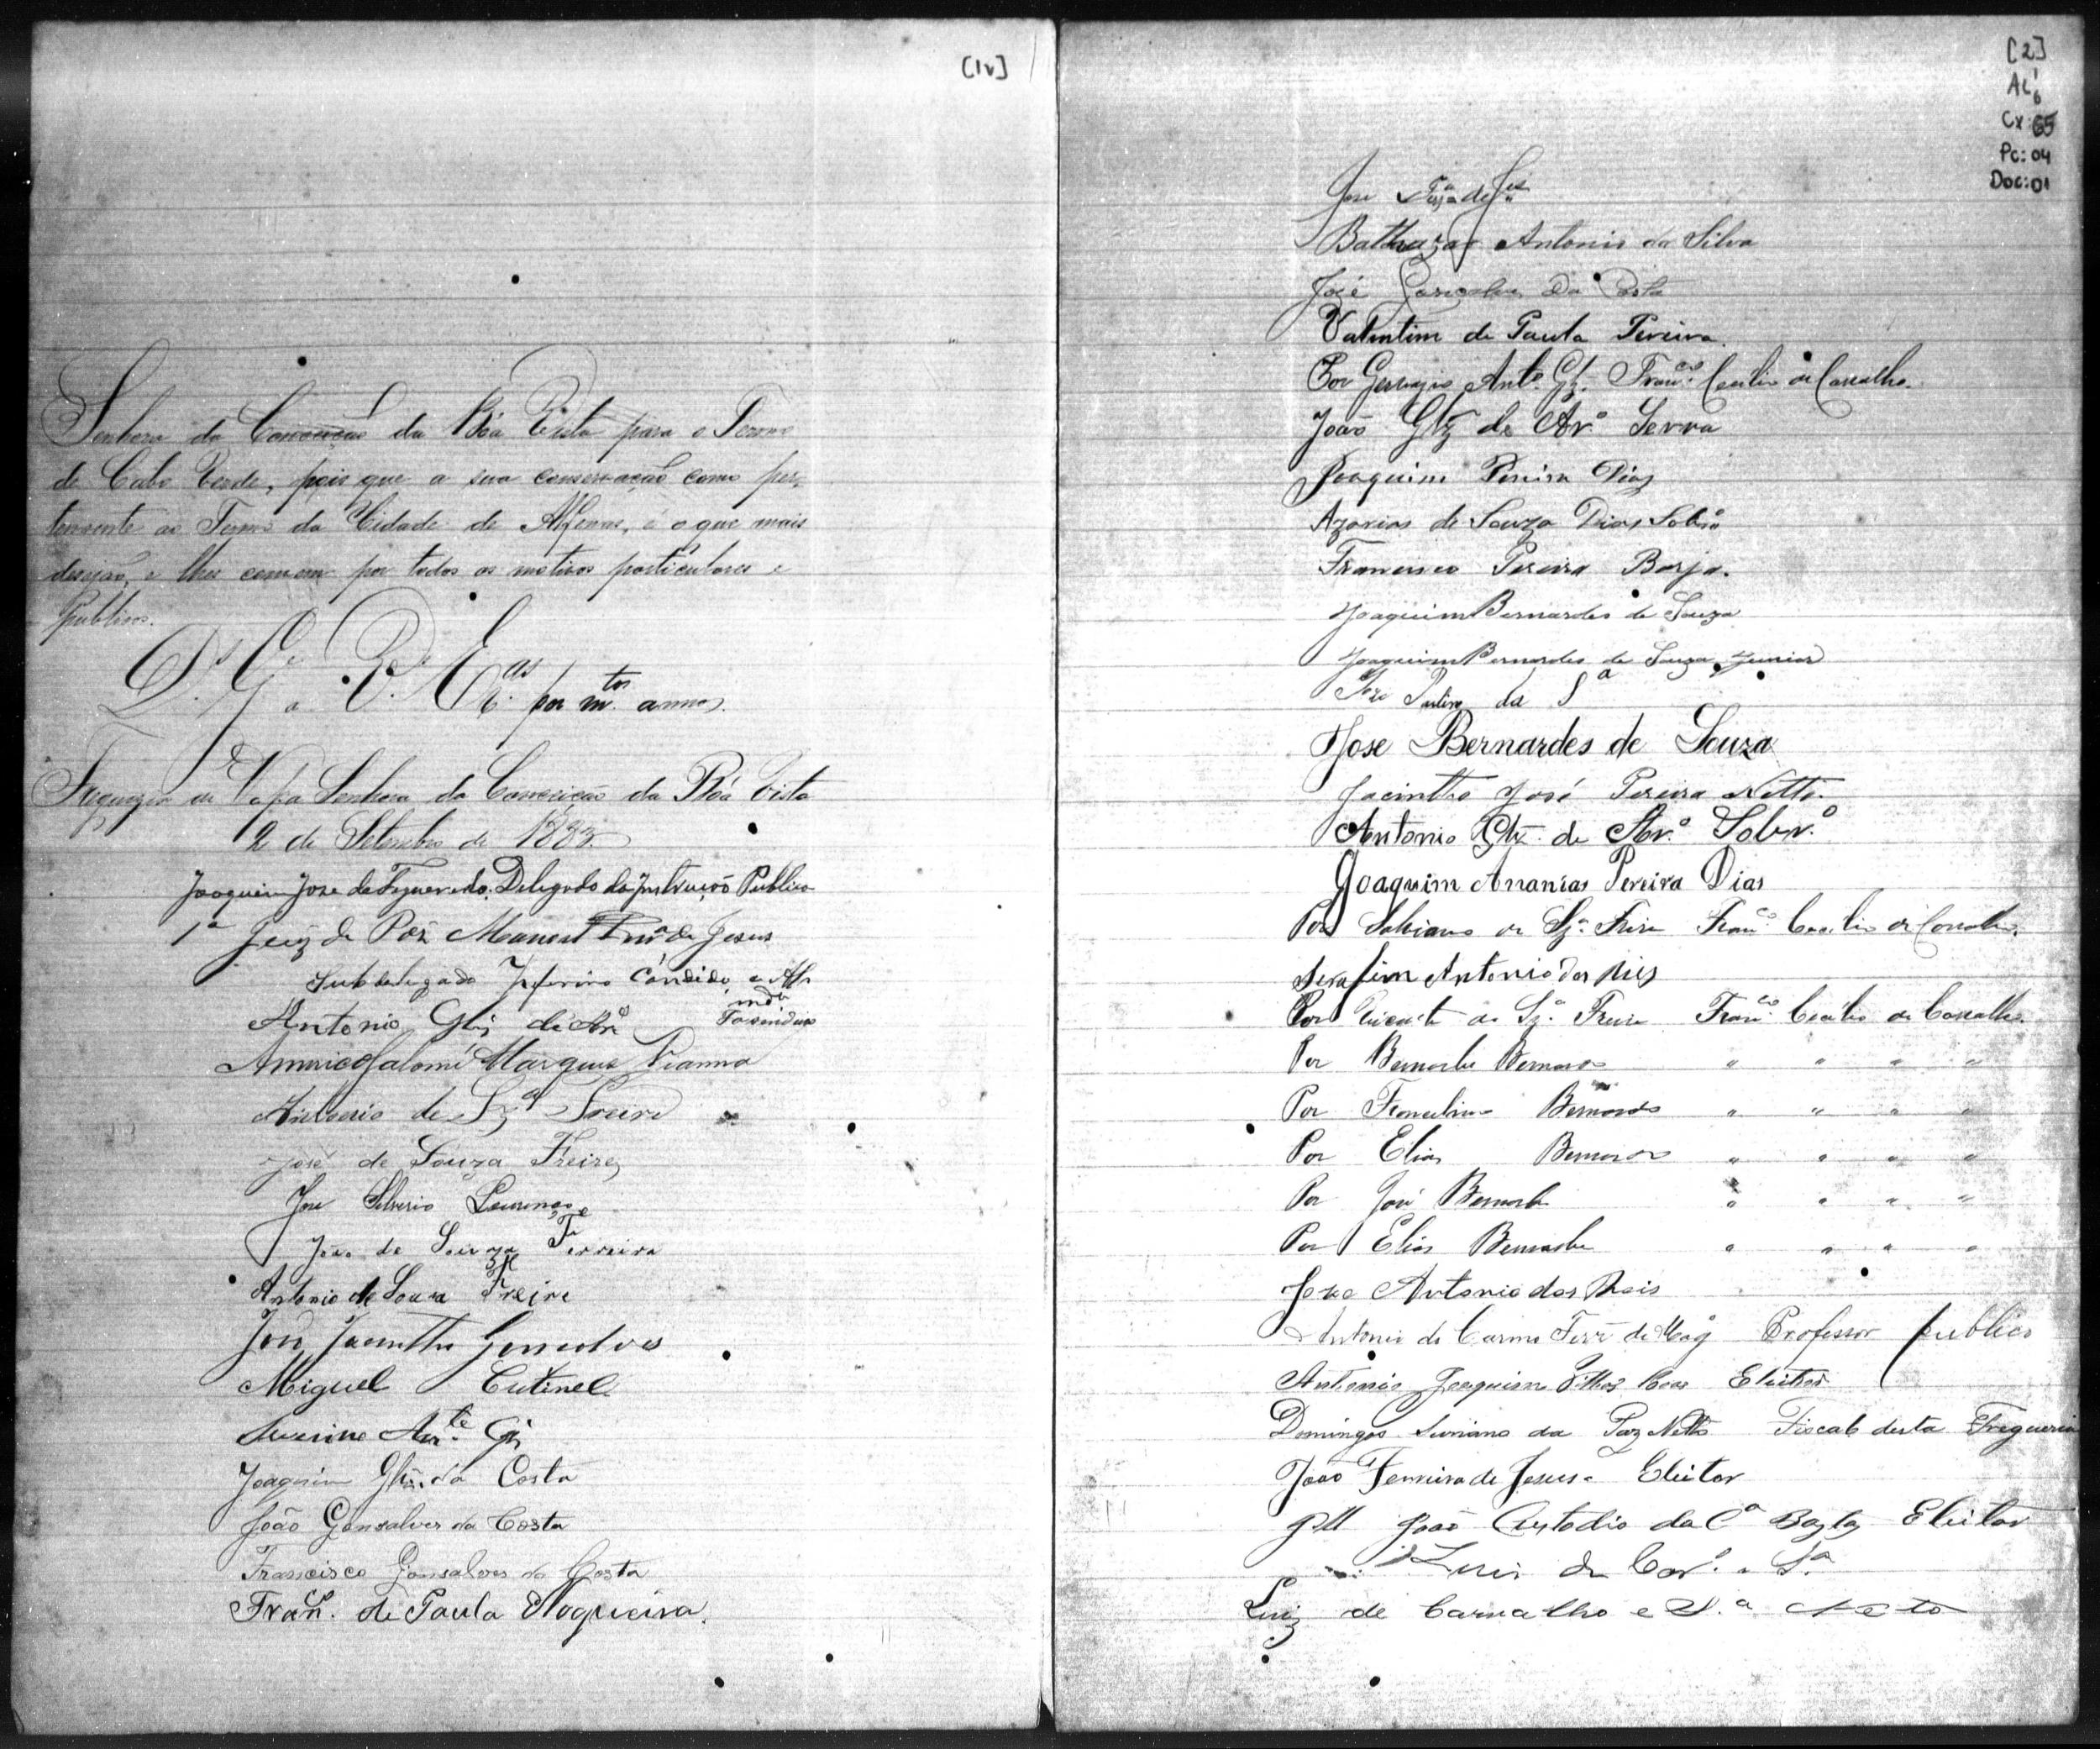 [1v]
Senhora da Conceição da Bôa Vista para o Termo
de Cabo Verde, pois que a sua conservação como per-
tencente ao Termo da Cidade de Alfenas, é o que mais
desejão, e lhes convem por todos os motivos particulares e
publicos.
D.s G.e a V. Ex.as por m.tos annos.
Freguezia de Nossa Senhora da Conceição da Bôa Vista
2 de Setembro de 1883.
Joaquim Jose de Figueredo, Delegado da Instrução Publica
1º Juiz de Paz Manoel de Jesus
Subdelegado Candido
Antonio Glz de Ar.o
Americo Salomé Marques Vianna
Antonio de Sz.a Freire
José de Souza Freire
Jose Silverio Lourenço
João de Souza Ferreira
Antonio de Souza Freire
José Jacintho Gonsalves
Miguel Cutinel
Joaquim Glz. da Costa
João Gonsalves da Costa
Francisco Gonsalves da Costa
Fran.co de Paula Nogueira.
[2]
AL 1
6
Cx: 65
Pc: 04
Doc: 01
Jose
Balthazar Antonio da Silva
José Gonçalves Da Costa
Valentim de Paula Pereira.
Por Gervazio Ant.o Glz. Fran.co Cecilio de Carvalho.
João Glz de Ar.o Serra
Joaquim Pereira Dias
Azarias de Souza Dias Sobr.o
Francisco Pereira Borja.
Joaquim Bernardes de Souza
Joaquim Bernardes de Souza Junior
Jose Paulino da S.a
Jose Bernardes de Souza
Jacintho José Pereira Netto.
Antonio Glz. de Ar.o Sobr.o
Joaquim Ananias Pereira Dias
Por Sabiano de Sz.a Freire Fran.co Cecilio de Carvalho.
Serafim Antonio dos Reis
Por Vicente de Sz.a Freire Fran.co Cecilio de Carvalho.
Por Bernarde Bernardes " " " "
Por Francelino Bernardes " " " "
Por Elias Bernardes " " " "
Por José Bernarde " " " "
Por Elias Bernarde " " " "
João Antonio dos Reis
Antonio do Carmo Ferr.a de Mag. Professor publico
Antonio Joaquim Eleitor
Domingos Suriano da Paz Netto Fiscal desta Freguezia
João Ferreira de Jesus. Eleitor
João Custodio da C.a Eleitor
Luis de Car.o e S.a
Luiz de Carvalho e S.a Neto